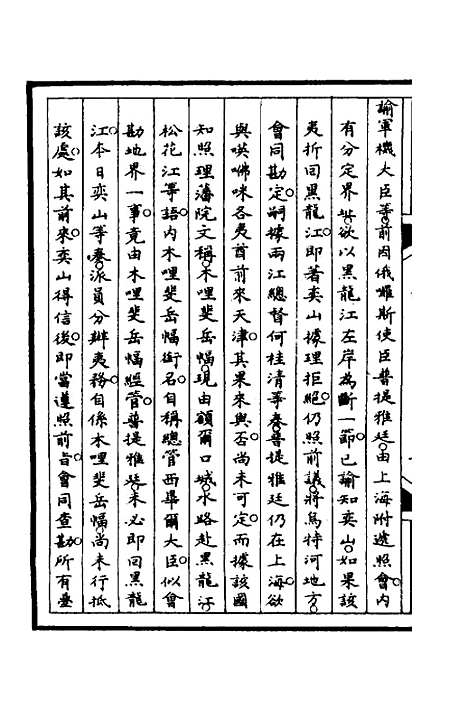 諭軍機大臣等前因俄羅斯使臣普提雅廷由上海附遞照會內
有分定界址欲以黑龍江左岸為斷一節已諭知奕山如果該
夷折回黑龍江即著奕山據理拒絕仍照前議將烏特河地方
會同勘定嗣據兩江總督何桂清等奏普提雅廷仍在上海欲
與𠸄咈咪各夷酋前來天津其果來與否尚未可定而據該國
知照理藩院文稱木哩斐岳幅現由額爾口城水路赴黑龍江
松花江等語內木哩斐岳幅銜名自稱總管西畢爾大臣似會
勘地界一事竟由木哩斐岳幅經管普提雅廷未必即回黑龍
江本日奕山等奏派員分辦夷務自係木哩斐岳幅尚未行抵
該處如其前來奕山得信後即當遵照前旨會同查勘所有臺